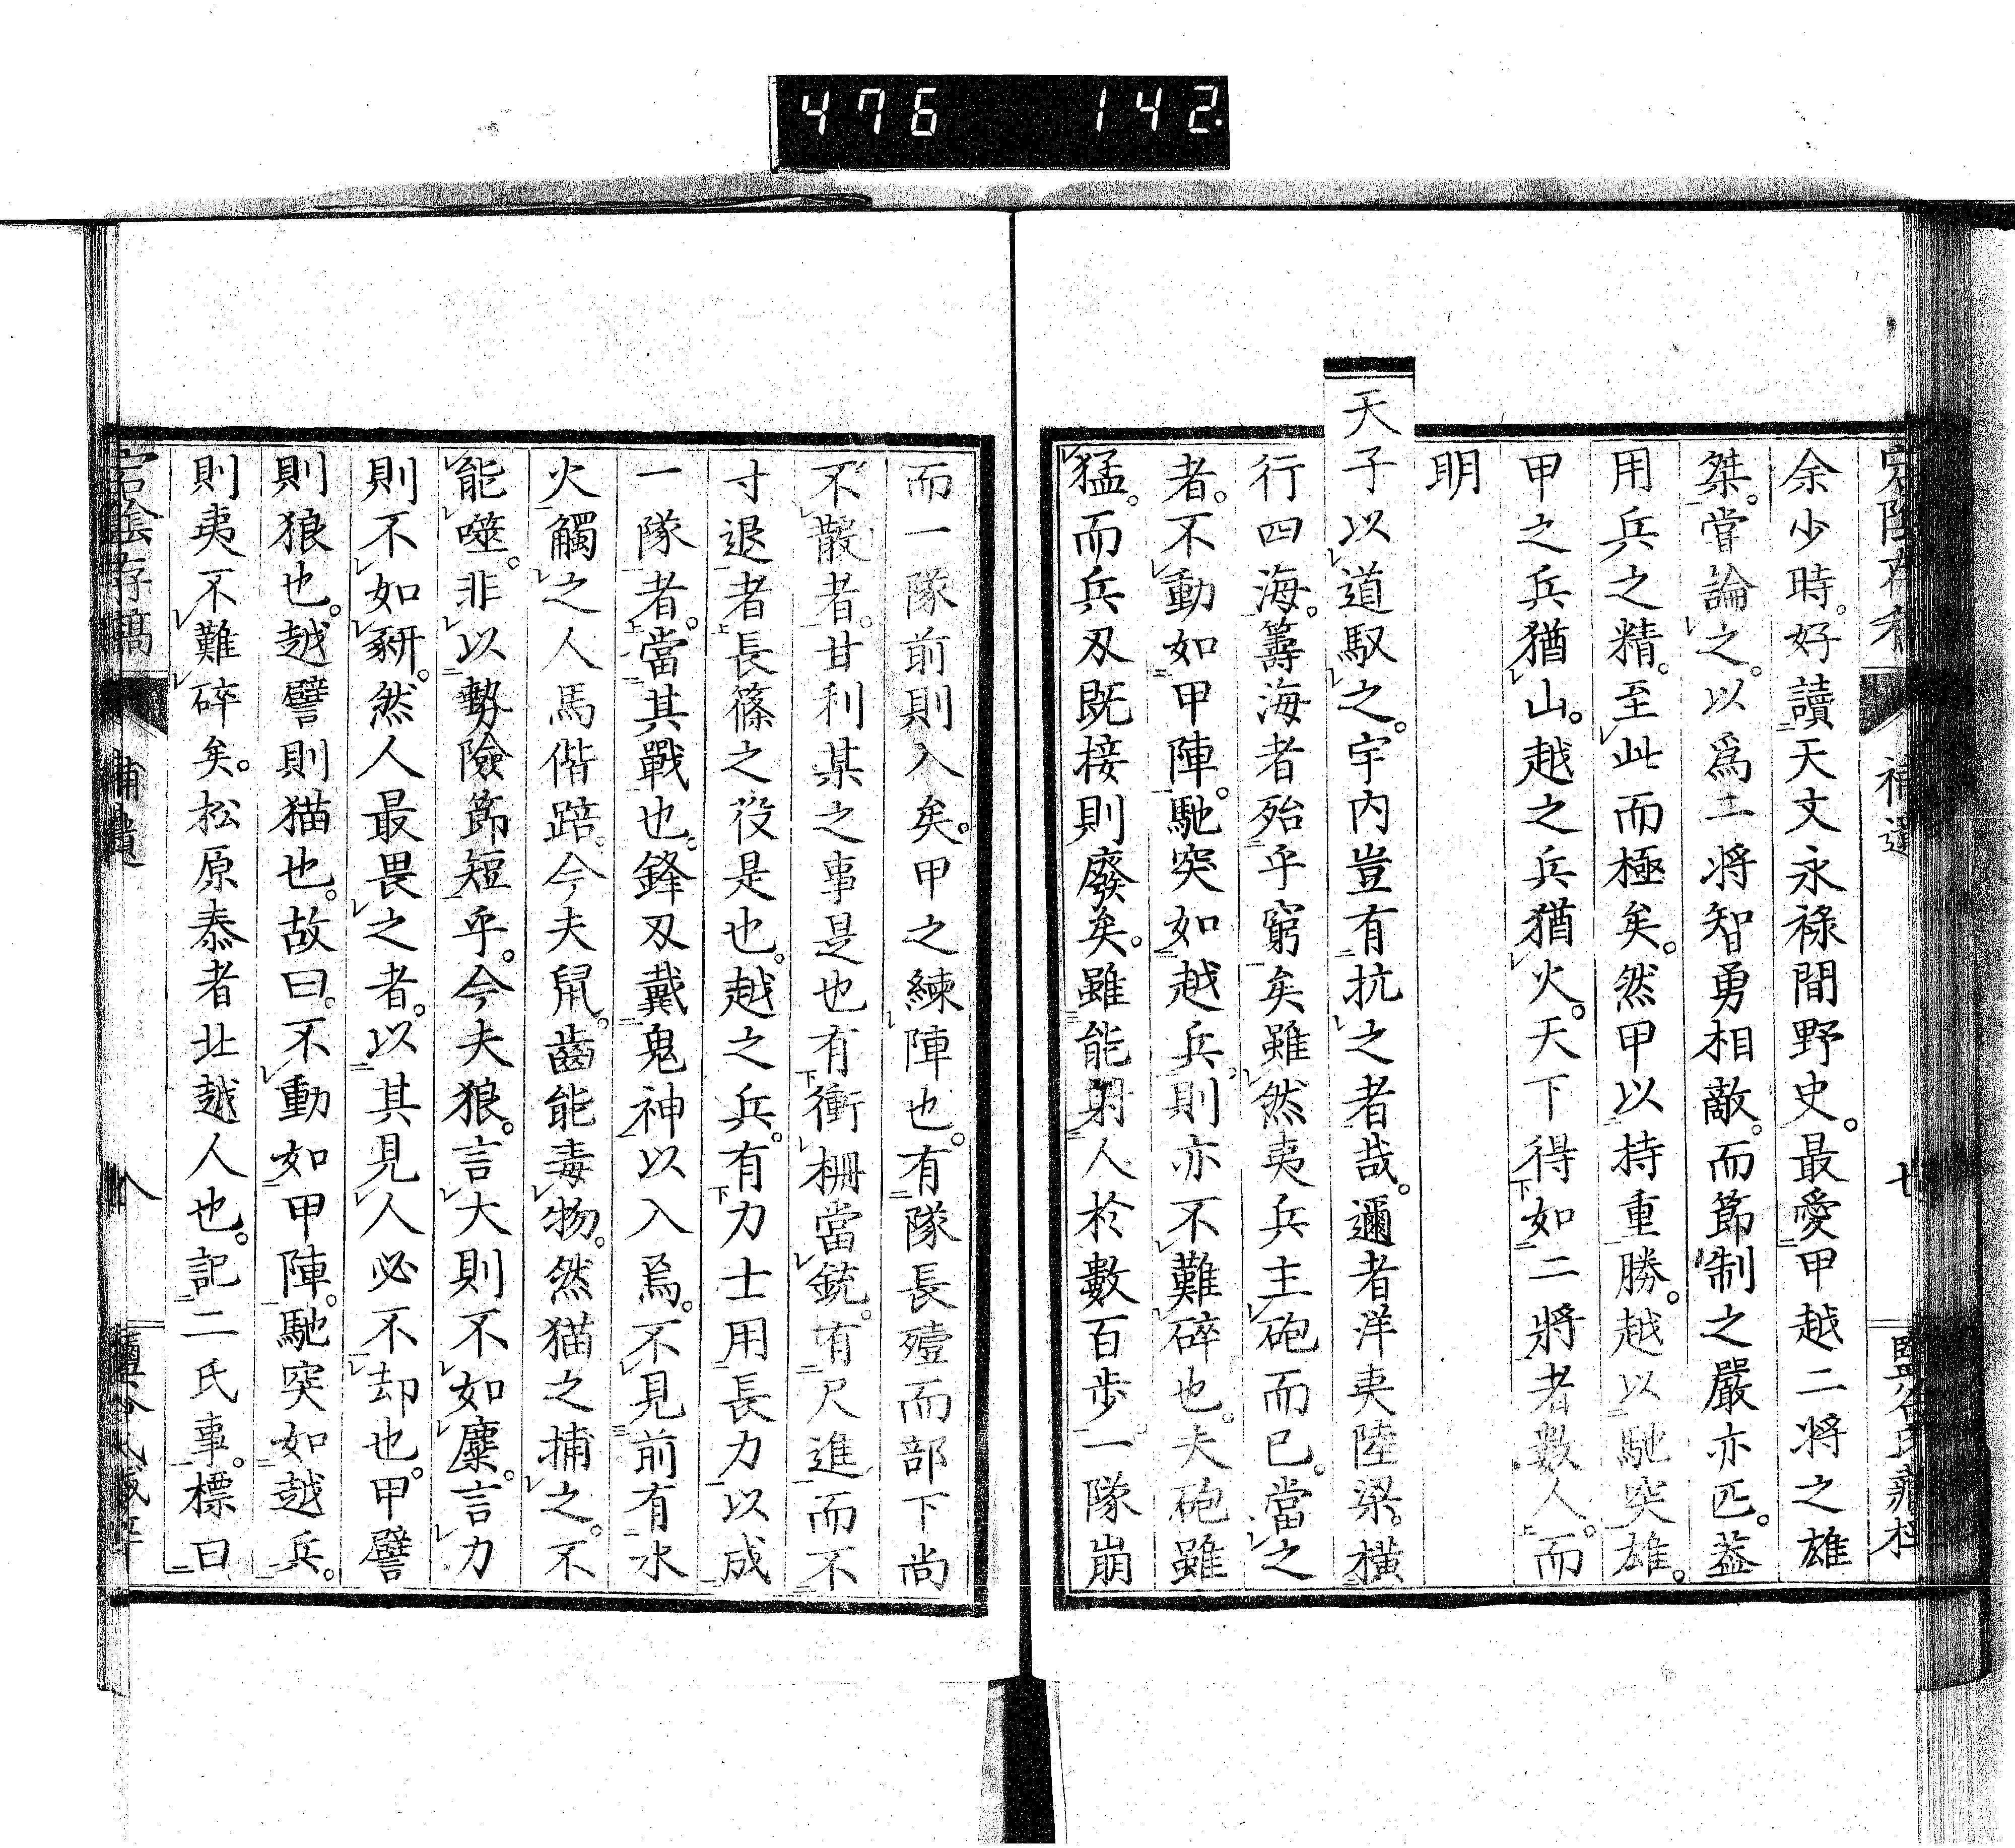 476 142.
余少時。好讀天文永祿間野史。最愛甲越二將之雄
桀。嘗論之。以爲二將智勇相敵。而節制之嚴亦匹。蓋
用兵之精。至此而極矣。然甲以持重勝。越以馳突雄。
甲之兵猶山。越之兵猶火。天下得如二將者數人。而
明
天子以道馭之。宇内豈有抗之者哉。邇者洋夷陸梁。橫
行四海。籌海者殆乎窮矣雖然夷兵主砲而已。當之
者。不動如甲陣。馳突如越兵。則亦不難碎也。夫砲雖
猛。而兵刃既接則廢矣。雖能射人於數百步。一隊崩
而一隊前則入矣。甲之練陣也。有隊長殪而部下尚
不散者。甘利某之事是也有衝柵當銃。有尺進而不
寸退者長篠之役是也。越之兵。有力士用長力以成
一隊者。當其戰也。鋒刃戴鬼神以入焉。不見前有水
火觸之人馬偕踣。今夫鼠。齒能毒物。然猫之捕之。不
能噬。非以勢險節短乎。今夫狼。言大則不如麋。言力
則不如豜。然人最畏之者。以其見人必不却也。甲譬
則狼也。越譬則猫也。故曰。不動如甲陣。馳突如越兵。
則夷不難碎矣。松原泰者北越人也。記二氏事。標曰
宕陰存稿 補遺 八